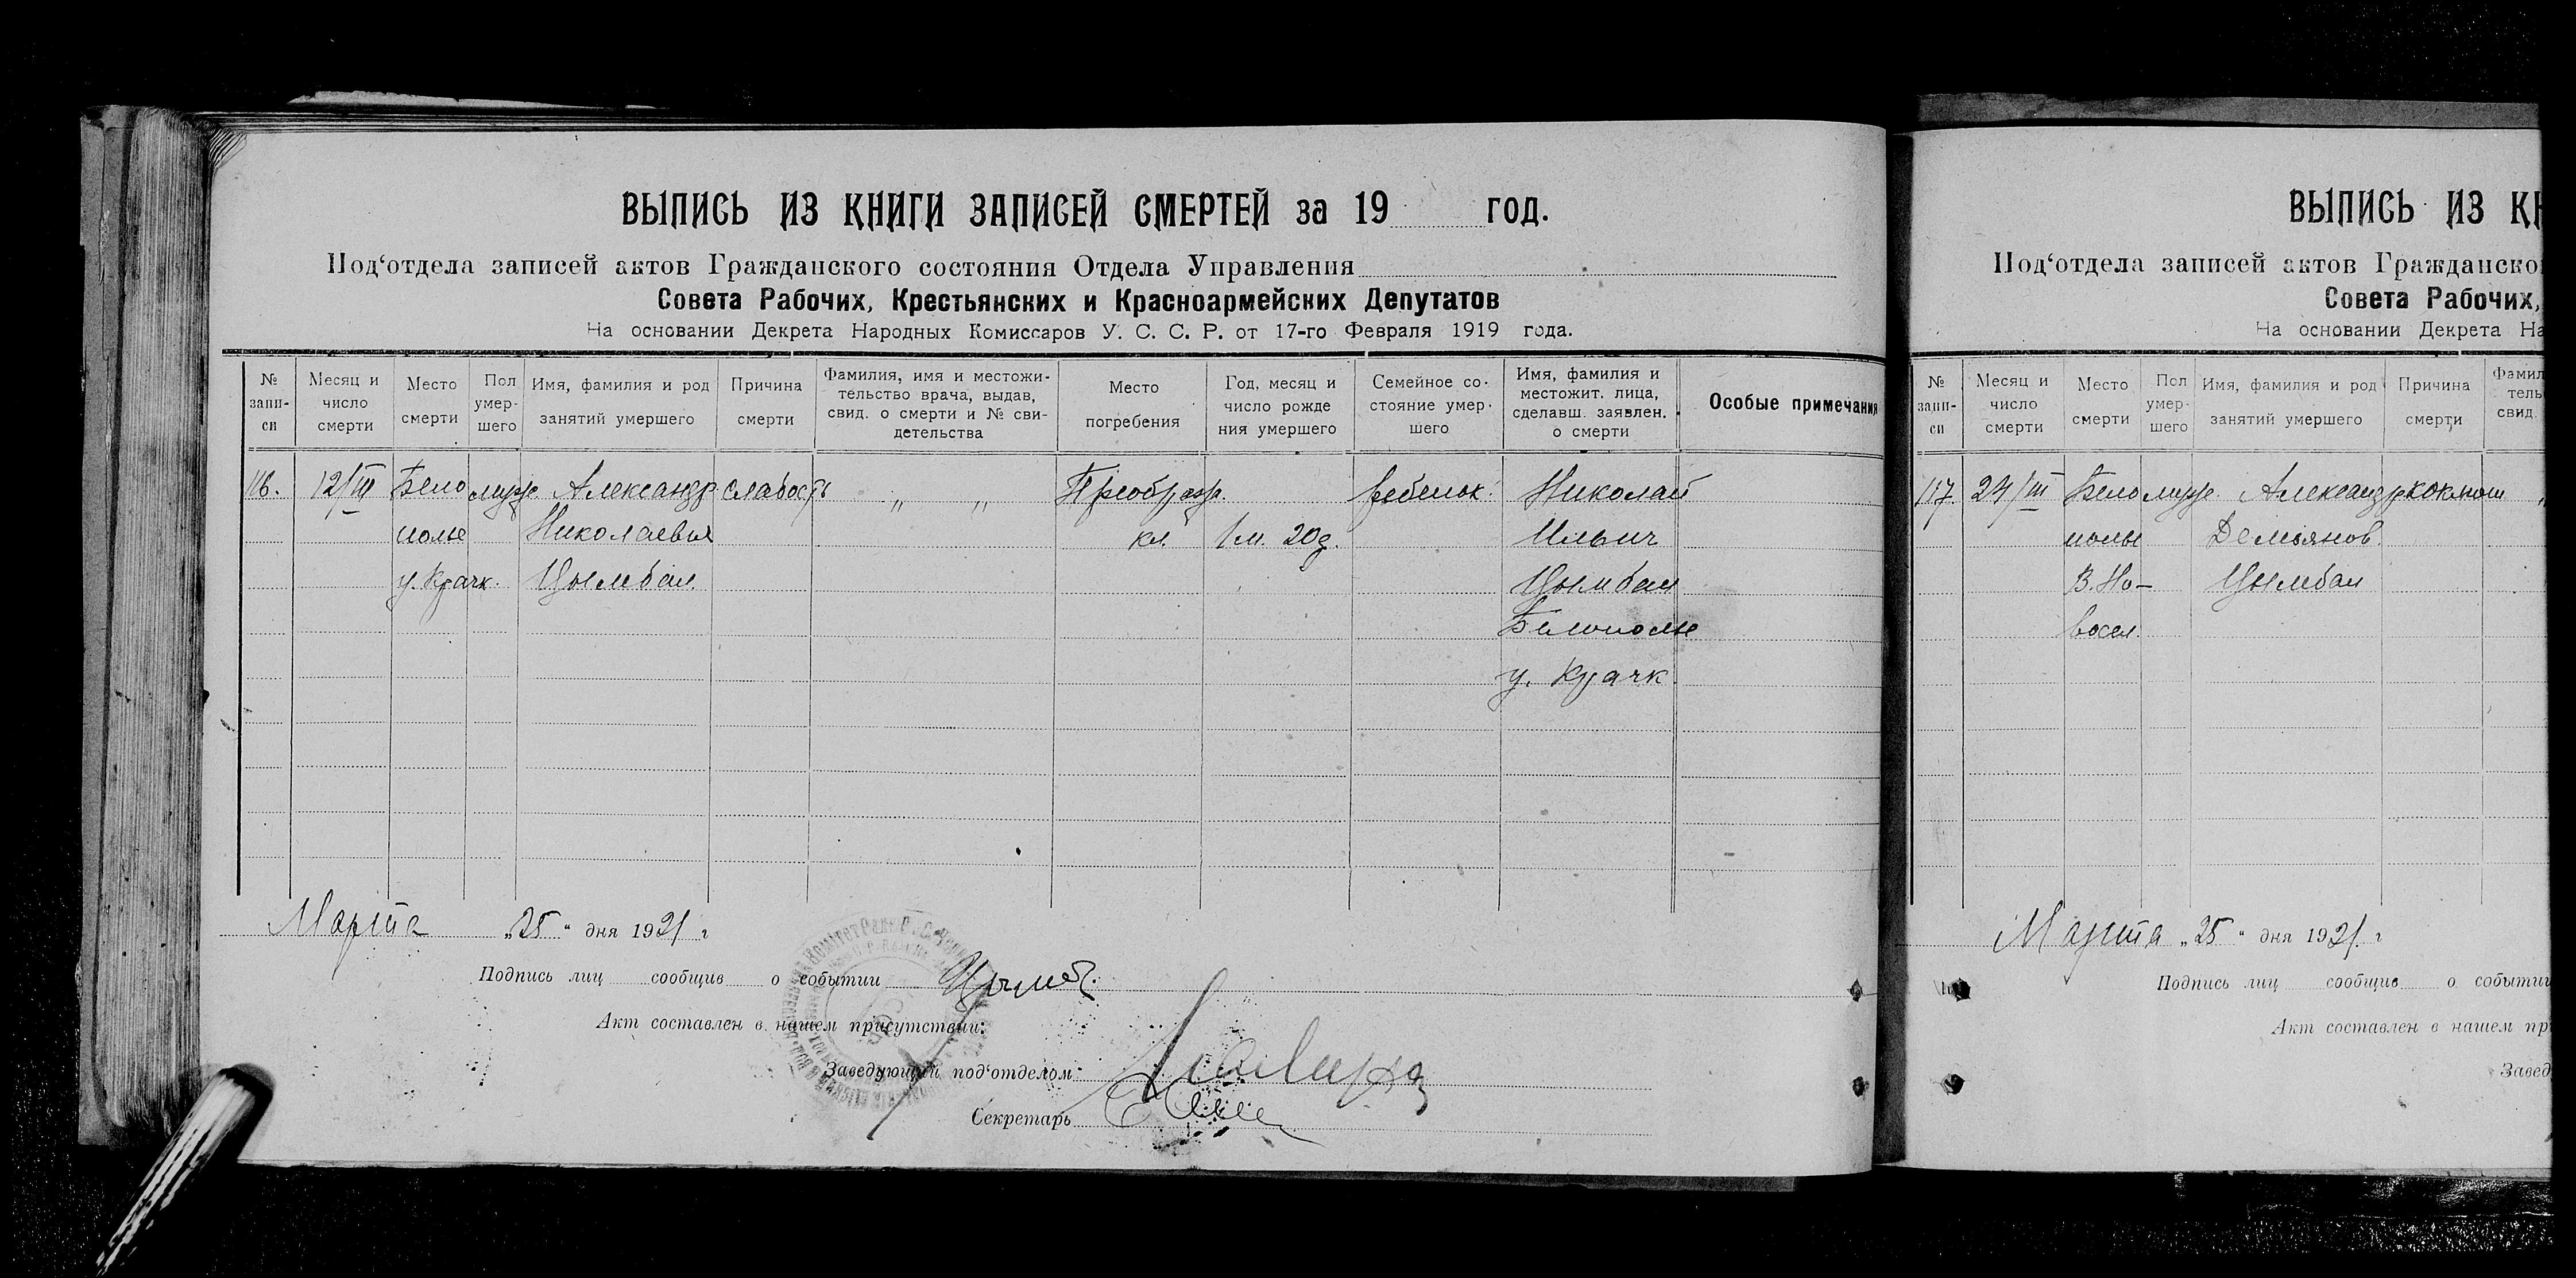 ВЫПИСЬ ИЗ КНИГИ ЗАПИСЕЙ СМЕРТЕЙ за 19 год.
Под‘отдела записей актов Гражданского состояния Отдела Управления
Совета Рабочих, Крестьянских и Красноармейских Депутатов
На основании Декрета Народных Комиссаров У. С. С. Р. от 17-го Февраля 1919 года.
№ запи-
си
Месяц и
число
смерти
Место
смерти
Пол
умер-
шего
Имя, фамилия и род
занятий умершего
Причина
смерти
Фамилия, имя и местожи-
тельство врача, выдав,
свид. о смерти и № сви-
детельства
Место
погребения
Год, месяц и
число рожде
ния умершего
Семейное со-
стояние умер-
шего
Имя, фамилия и
местожит. лица,
сделавш. заявлен.
о смерти
Особые примечания
116. 12/III Бело муж. Александр слабость „ „ Преображ. ребенок. Николай
полье Николаевич кл. 1 м. 20 д. Ильич
у. Крачк. Цымбал. Цымбал
Белополье
у. Крачк.
Марта „25“ дня 1921 г
Подпись лиц сообщив о событии Цымб.
Акт составлен в нашем присутствии:
Заведующий под‘отделом
Секретарь
ВЫПИСЬ ИЗ КН
Под‘отдела записей актов Гражданско
Совета Рабочих,
На основании Декрета На
№
запи-
си
Месяц и
число
смерти
Место
смерти
Пол
умер-
шего
Имя, фамилия и род
занятий умершего
Причина
смерти
Фамил
тель
свид.
117. 24/III Бело муж. Александр коклюш „
полье Демьянов.
В. Но- Цымбал
восел.
Марта „25“ дня 1921. г
Подпись лиц сообщив о событии
Акт составлен в нашем пр
Завед